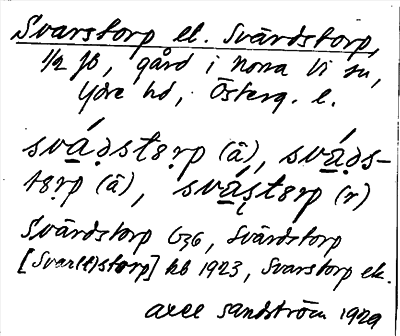 Svarstorp el. Svärdstorp,
1/2 jb, gård i Norra Vi sn,
Ydre hd, Österg. l.
svá̱ḍstɵṛp (â), svá̱ḍs-
tɵṛp (â), svá̱ṣtɵrp (r)
Svärdstorp G36, Svärdstorp
[Svar(t)storp] kb 1923, Svarstorp ek.
Axel Sandström 1929